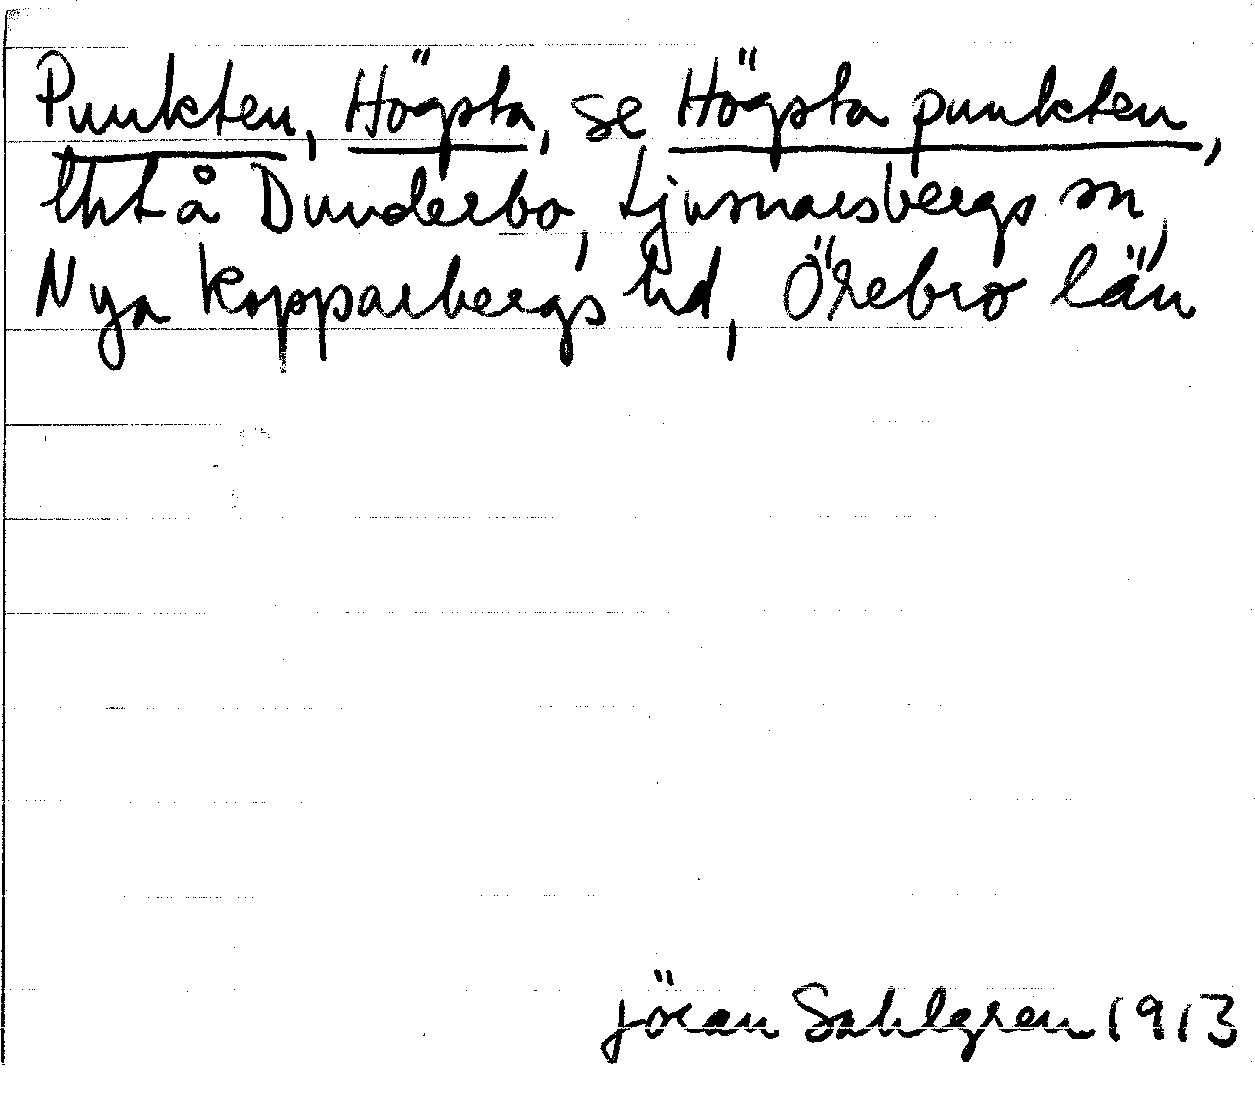 Punkten, Högsta, se Högsta punkten,
lht å Dunderbo, Ljusnarsbergs sn,
Nya Kopparbergs hd, Örebro län
Jöran Sahlgren 1913